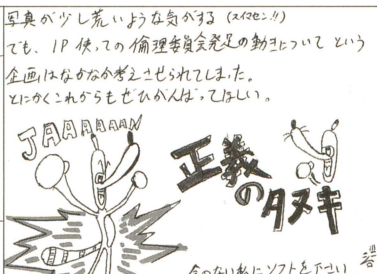 写真が少し荒いような気がする(スイマセン!!)
でも、1P使っての倫理委員会発足の動きについてという
企画はなかなか考えさせられてしまった。
とにかくこれからもぜひがんばってほしい。
JAAAAAAN
正義
のタヌキ
金のない私にソフトを下さい